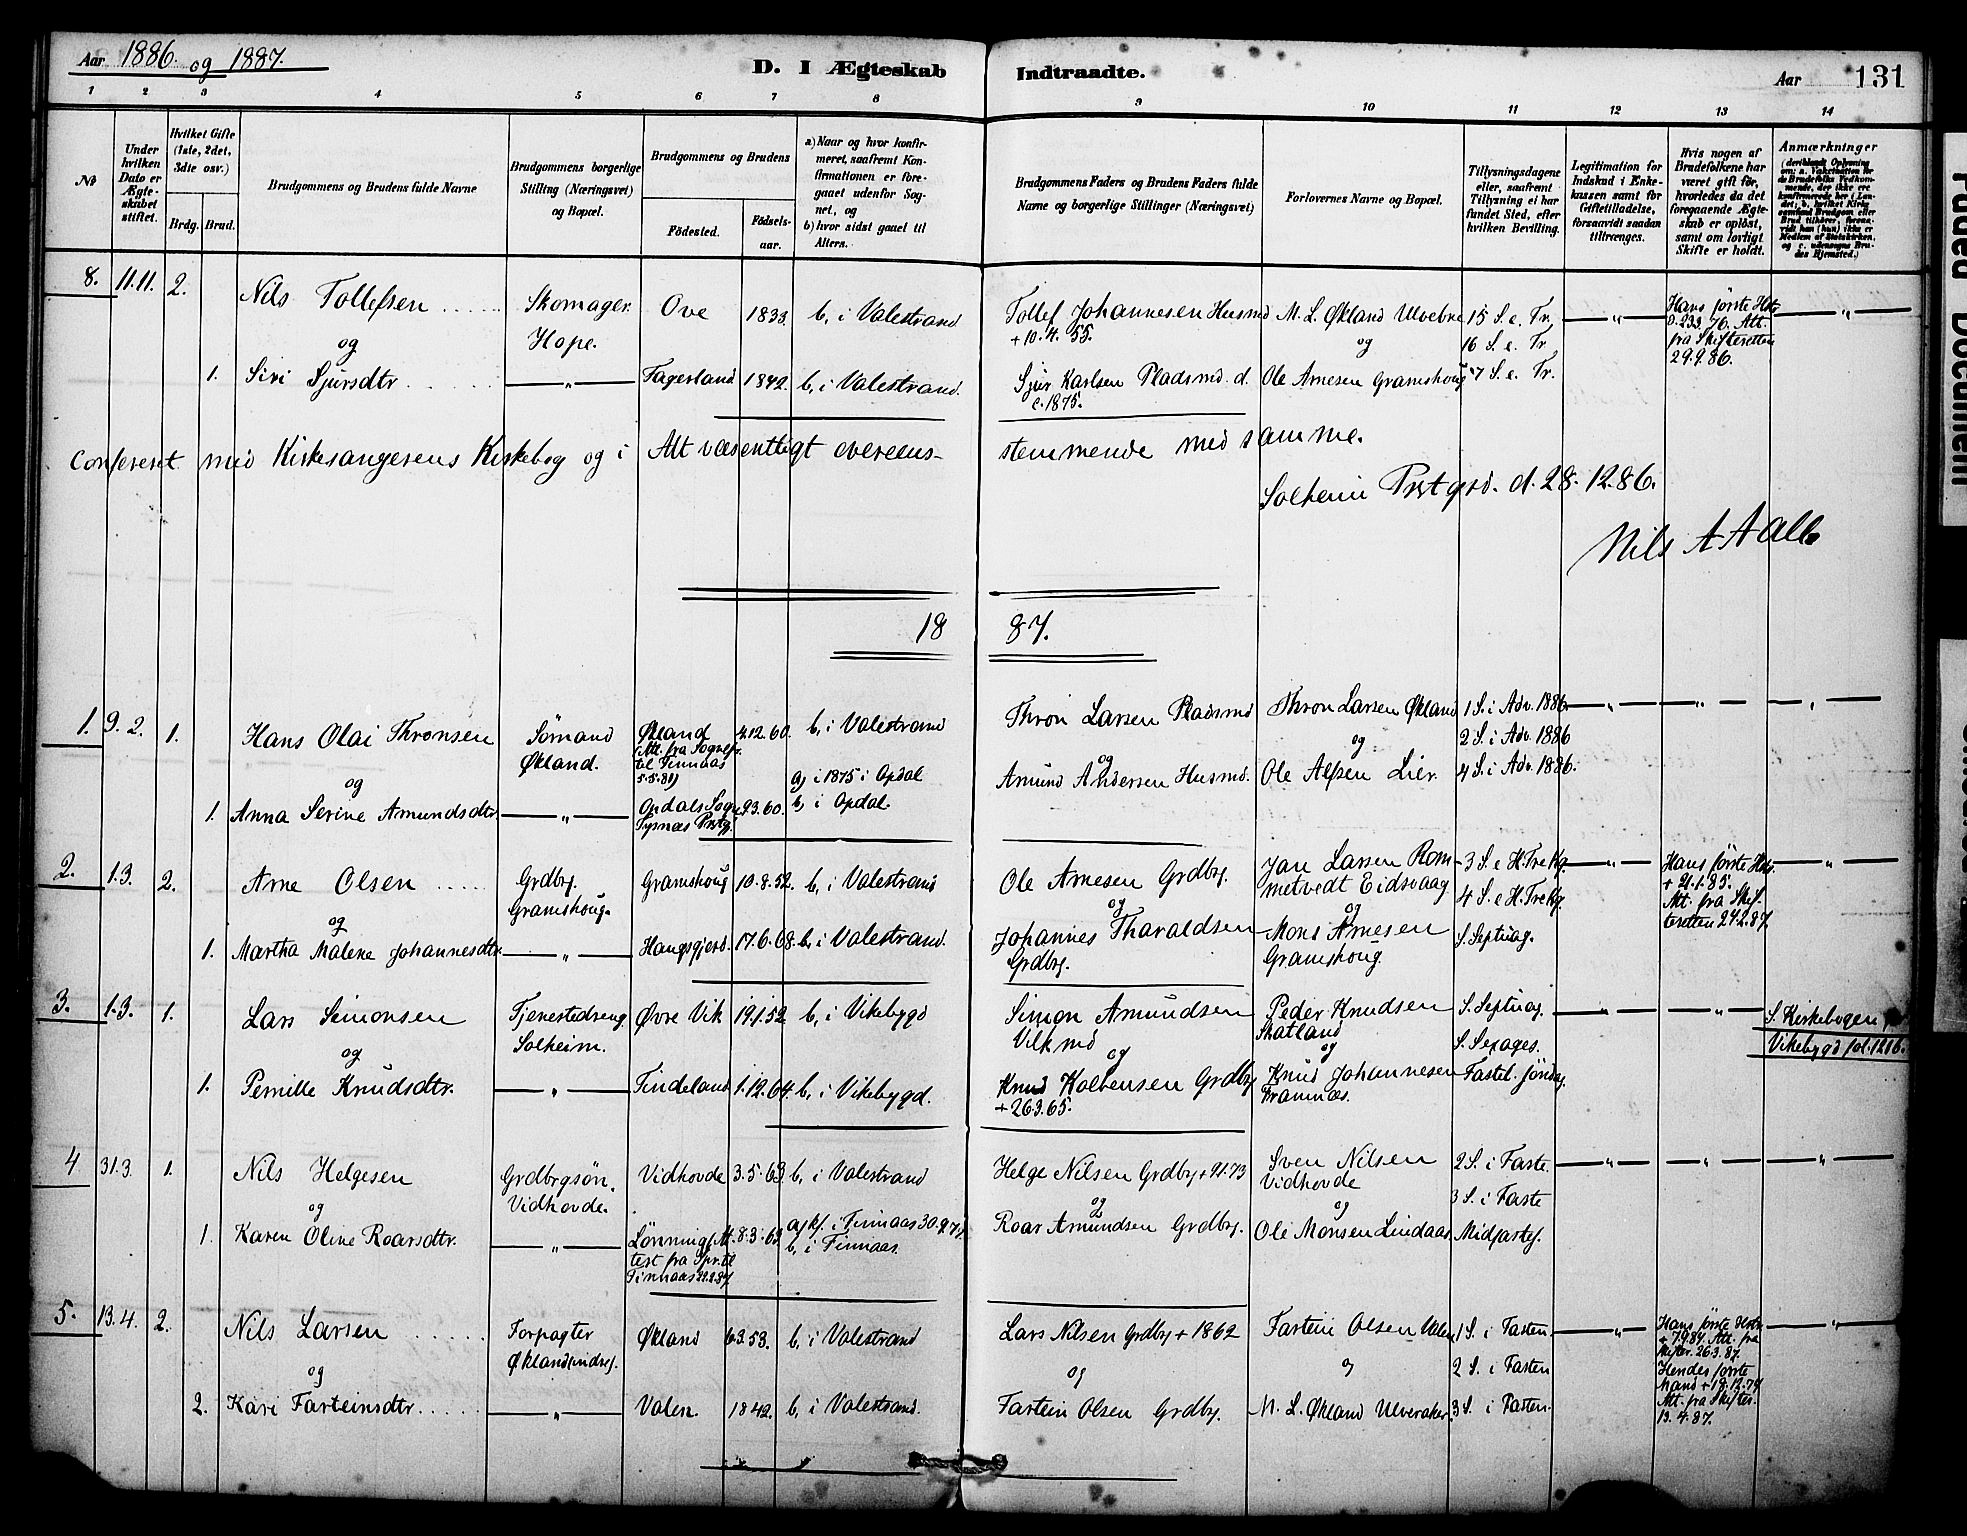 Aar 1886. og 1887.
D. I Ægteskab Indtraadte.
Aar 131
1 2 3 4 5 6 7 8 9 10 11 12 13 14
No
Under hvilken Dato er Ægteskabet stiftet.
Hvilket Gifte (1ste, 2det, 3die osv.)
Brdg. Brud.
Brudgommens og Brudens fulde Navne
Brudgommens borgerlige Stilling (Næringsvei) og Bopæl.
Brudgommens og Brudens
Fødested. Fødselsaar.
a) Naar og hvor konfirmeret, saafremt Konfirmationen er foregaaet udenfor Sognet, og
b) hvor sidst gaaet til Alters.
Brudgommens Faders og Brudens Faders fulde Navne og borgerlige Stillinger (Næringsvei)
Forlovernes Navne og Bopæl.
Tillysningsdagene eller, saafremt Tillysning ei har fundet Sted, efter hvilken Bevilling.
Legitimation for Indskud i Enkekassen samt for Giftetilladelse, forsaavidt saadan tiltrænges.
Hvis nogen af Brudefolkene har været gift før, hvorledes da det foregaaende Ægteskab er opløst, samt om lovligt Skifte er holdt.
Anmærkninger
8. 11.11. 2. Nils Tollefsen Skomager Hope. Ove 1833. b, i Valestrand Tollef Johannesen Husmd +10.4.55. M. L. Økland Ulvebne 15 S. e. Tr. — " — Hans første Hstr. D. 23.3.76. Att. fra Skifteretten 29.9.86. — " —
og og 16 S. e. Tr
1. Siri Sjursdtr — " — Fagerland 1842. b, i Valestrand. Sjur Karlsen Pladsmd. d. c. 1875. Ole Arnesen Gramshoug 17 S. e. Tr.
Confereret med Kirkesangerens Kirkebog og i Alt væsentligt overeens- stemmende med samme.
Solheim Prstgrd. d. 28.12.86.
Nils A Aall
18 87.
1. 9.2. 1. Hans Olai Thronsen Sømand Økland. Økland (Att. fra Sognepr. til Finnaas 5.5.81) 4.12.60. b, i Valestrand Thron Larsen Pladsmd Thron Larsen Økland 1 S. i Adv. 1886 — " — — " — — " —
og og og 2 S. i Adv. 1886
1. Anna Serine Amundsdtr. — " — Opdals Sogn Tysnæs Prstgj. 9.3.60. a) i 1875 i Opdal b, i Opdal. Amund Andersen Husmd. Ole Alfsen Lier. 4 S. i Adv. 1886.
2. 1.3. 2. Arne Olsen Grdbr. Gramshoug. Gramshoug 10.8.52. b, i Valestrand Ole Arnesen Grdbr. Jan Larsen Rommetvedt Eidsvaag 3 S. e H. Tre Kg. — " — Hans første Hstr. + 21.1.85. Att. fra Skifteretten 24.2.87. — " —
og og og 4 S. e H. Tre Kg.
1. Martha Malene Johannesdtr. — " — Haugsgjerd. 17.6.68. b, i Valestrand. Johannes Tharaldsen Grdbr. Mons Arnesen Gramshoug. S. Septuag.
3. 1.3. 1. Lars Simonsen Tjenestedreng Solheim. Øvre Vik 19.1.52 b, i Vikebygd Simon Amundsen Vilkmd Peder Knudsen Skatland S. Septuag. — " — — " — S. Kirkebogen for Vikebygd fol. 128b.
og og og S. Sexages.
1. Pernille Knudsdtr. — " — Tindeland 1.12.64. b, i Vikebygd. Knud Kolbensen Grdbr +26.3.65. Knud Johannesen Framnæs. Fastel. søndag.
4 31.3. 1. Nils Helgesen Grdbrgsøn. Vidhovde. Vidhovde 3.5.63 b, i Valestrand Helge Nilsen Grdbr + 2.1.73 Sven Nilsen Vidhovde 2 S. i Faste. — " — — " — — " —
og og og 3 S. i Faste
1. Karen Oline Roarsdtr. — " — Lønning (Attest fra Spr. til Finnaas 22.2.87. 8.3.63 a) kf. i Finnaas 30.9.77. b, i Finnaas. Roar Amundsen Grdbr. Ole Monsen Lindaas Midfastes.
5. 13.4. 2. Nils Larsen Forpagter Øklandsindrej. Økland 6.3.53. b, i Valestrand Lars Nilsen Grdbr + 1862 Fartein Olsen Valen 1 S. i Fasten. — " — Hans første Hstr. + 7.9.84. Att. fra Skifter. 26.3.87. — " —
og og og 2 S. i Fasten
2. Kari Farteinsdtr. — " — Valen. 1842. b, i Valestrand. Fartein Olsen Grdbr. M. L. Økland Ulveraker. 3 S. i Fasten. Hendes første Mand + 19.12.79 Att. fra Skifter. 13.4.87.